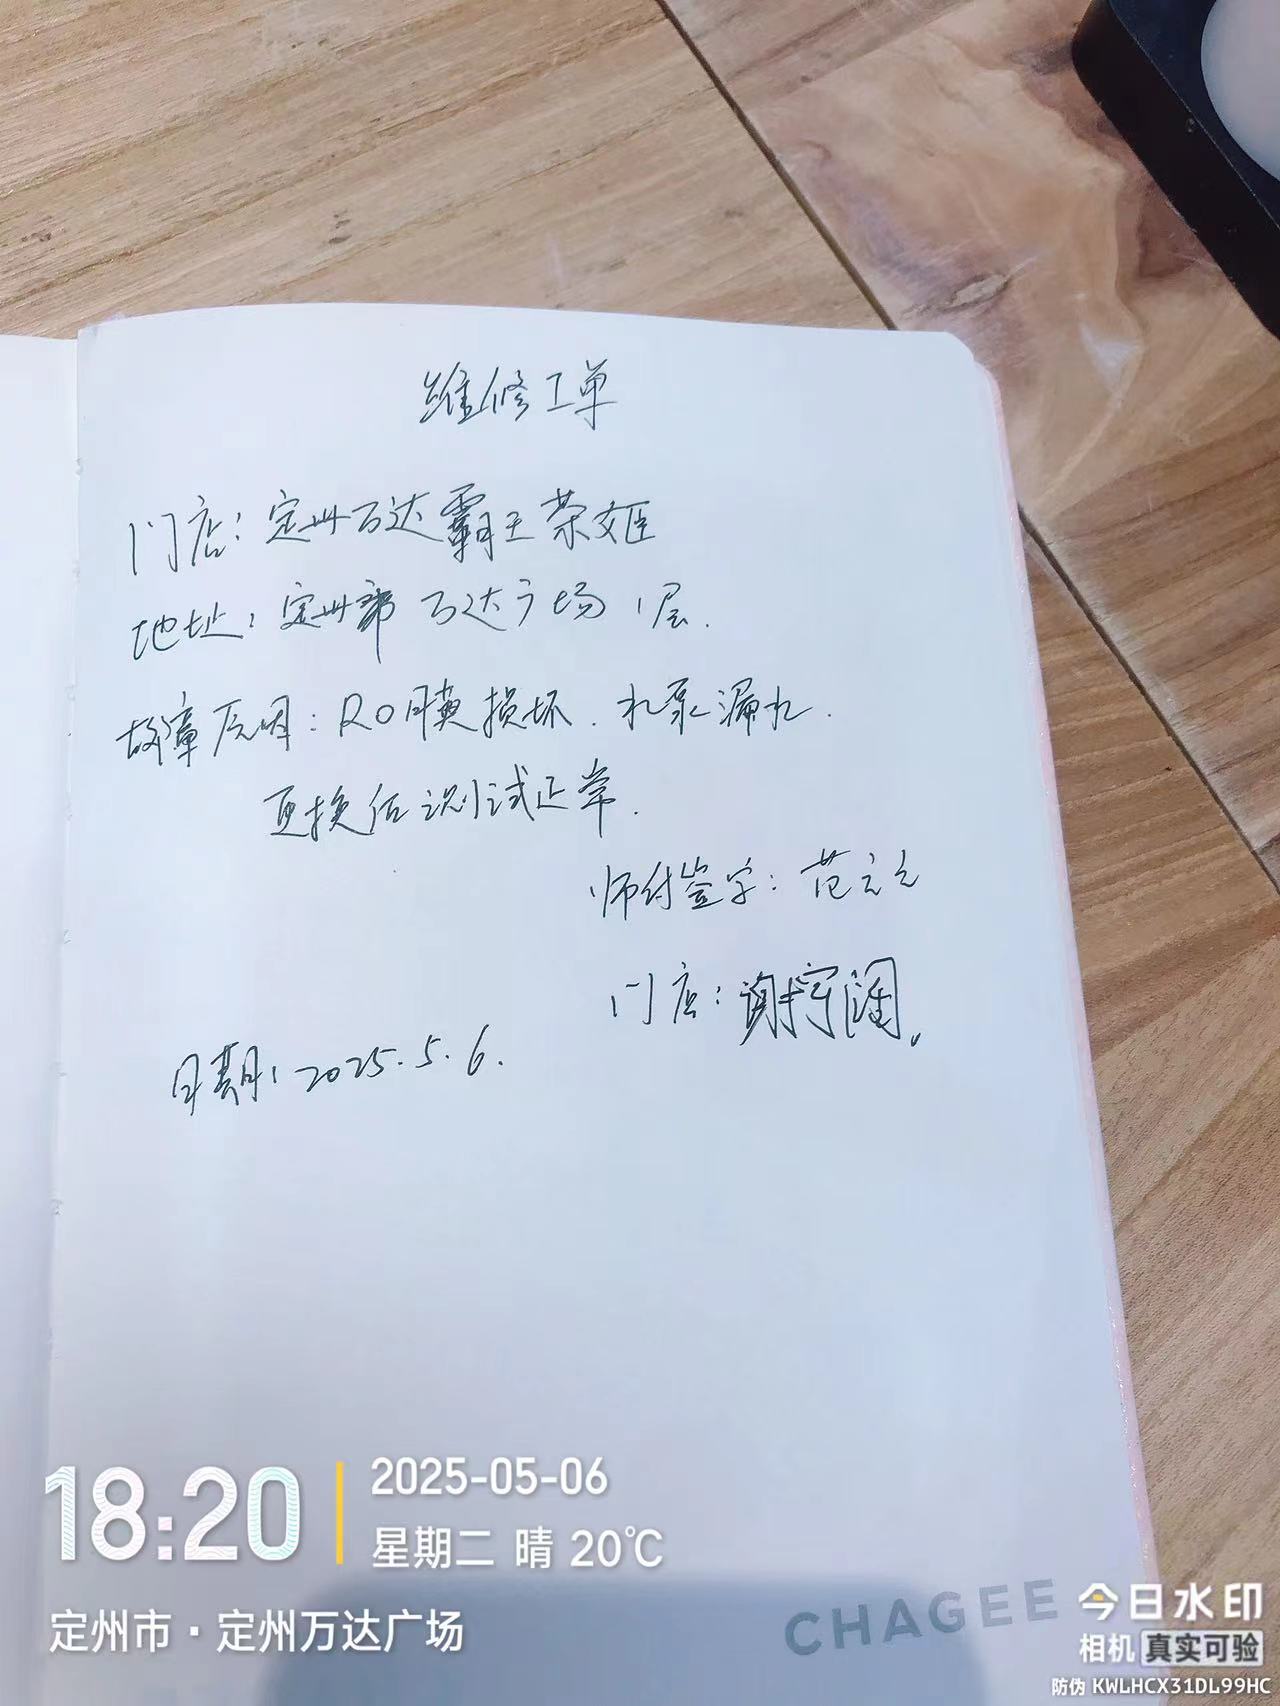 维修工单
门店：定州万达霸王茶姬
地址：定州市万达广场1层.
故障原因：RO膜损坏.水泵漏水.
更换后测试正常.
师付签字：范立立
门店：谢宇阔.
日期：2025.5.6.
18:20
2025-05-06
星期二 晴 20℃
定州市·定州万达广场
CHAGEE
今日水印
相机 真实可验
防伪 KWLHCX31DL99HC